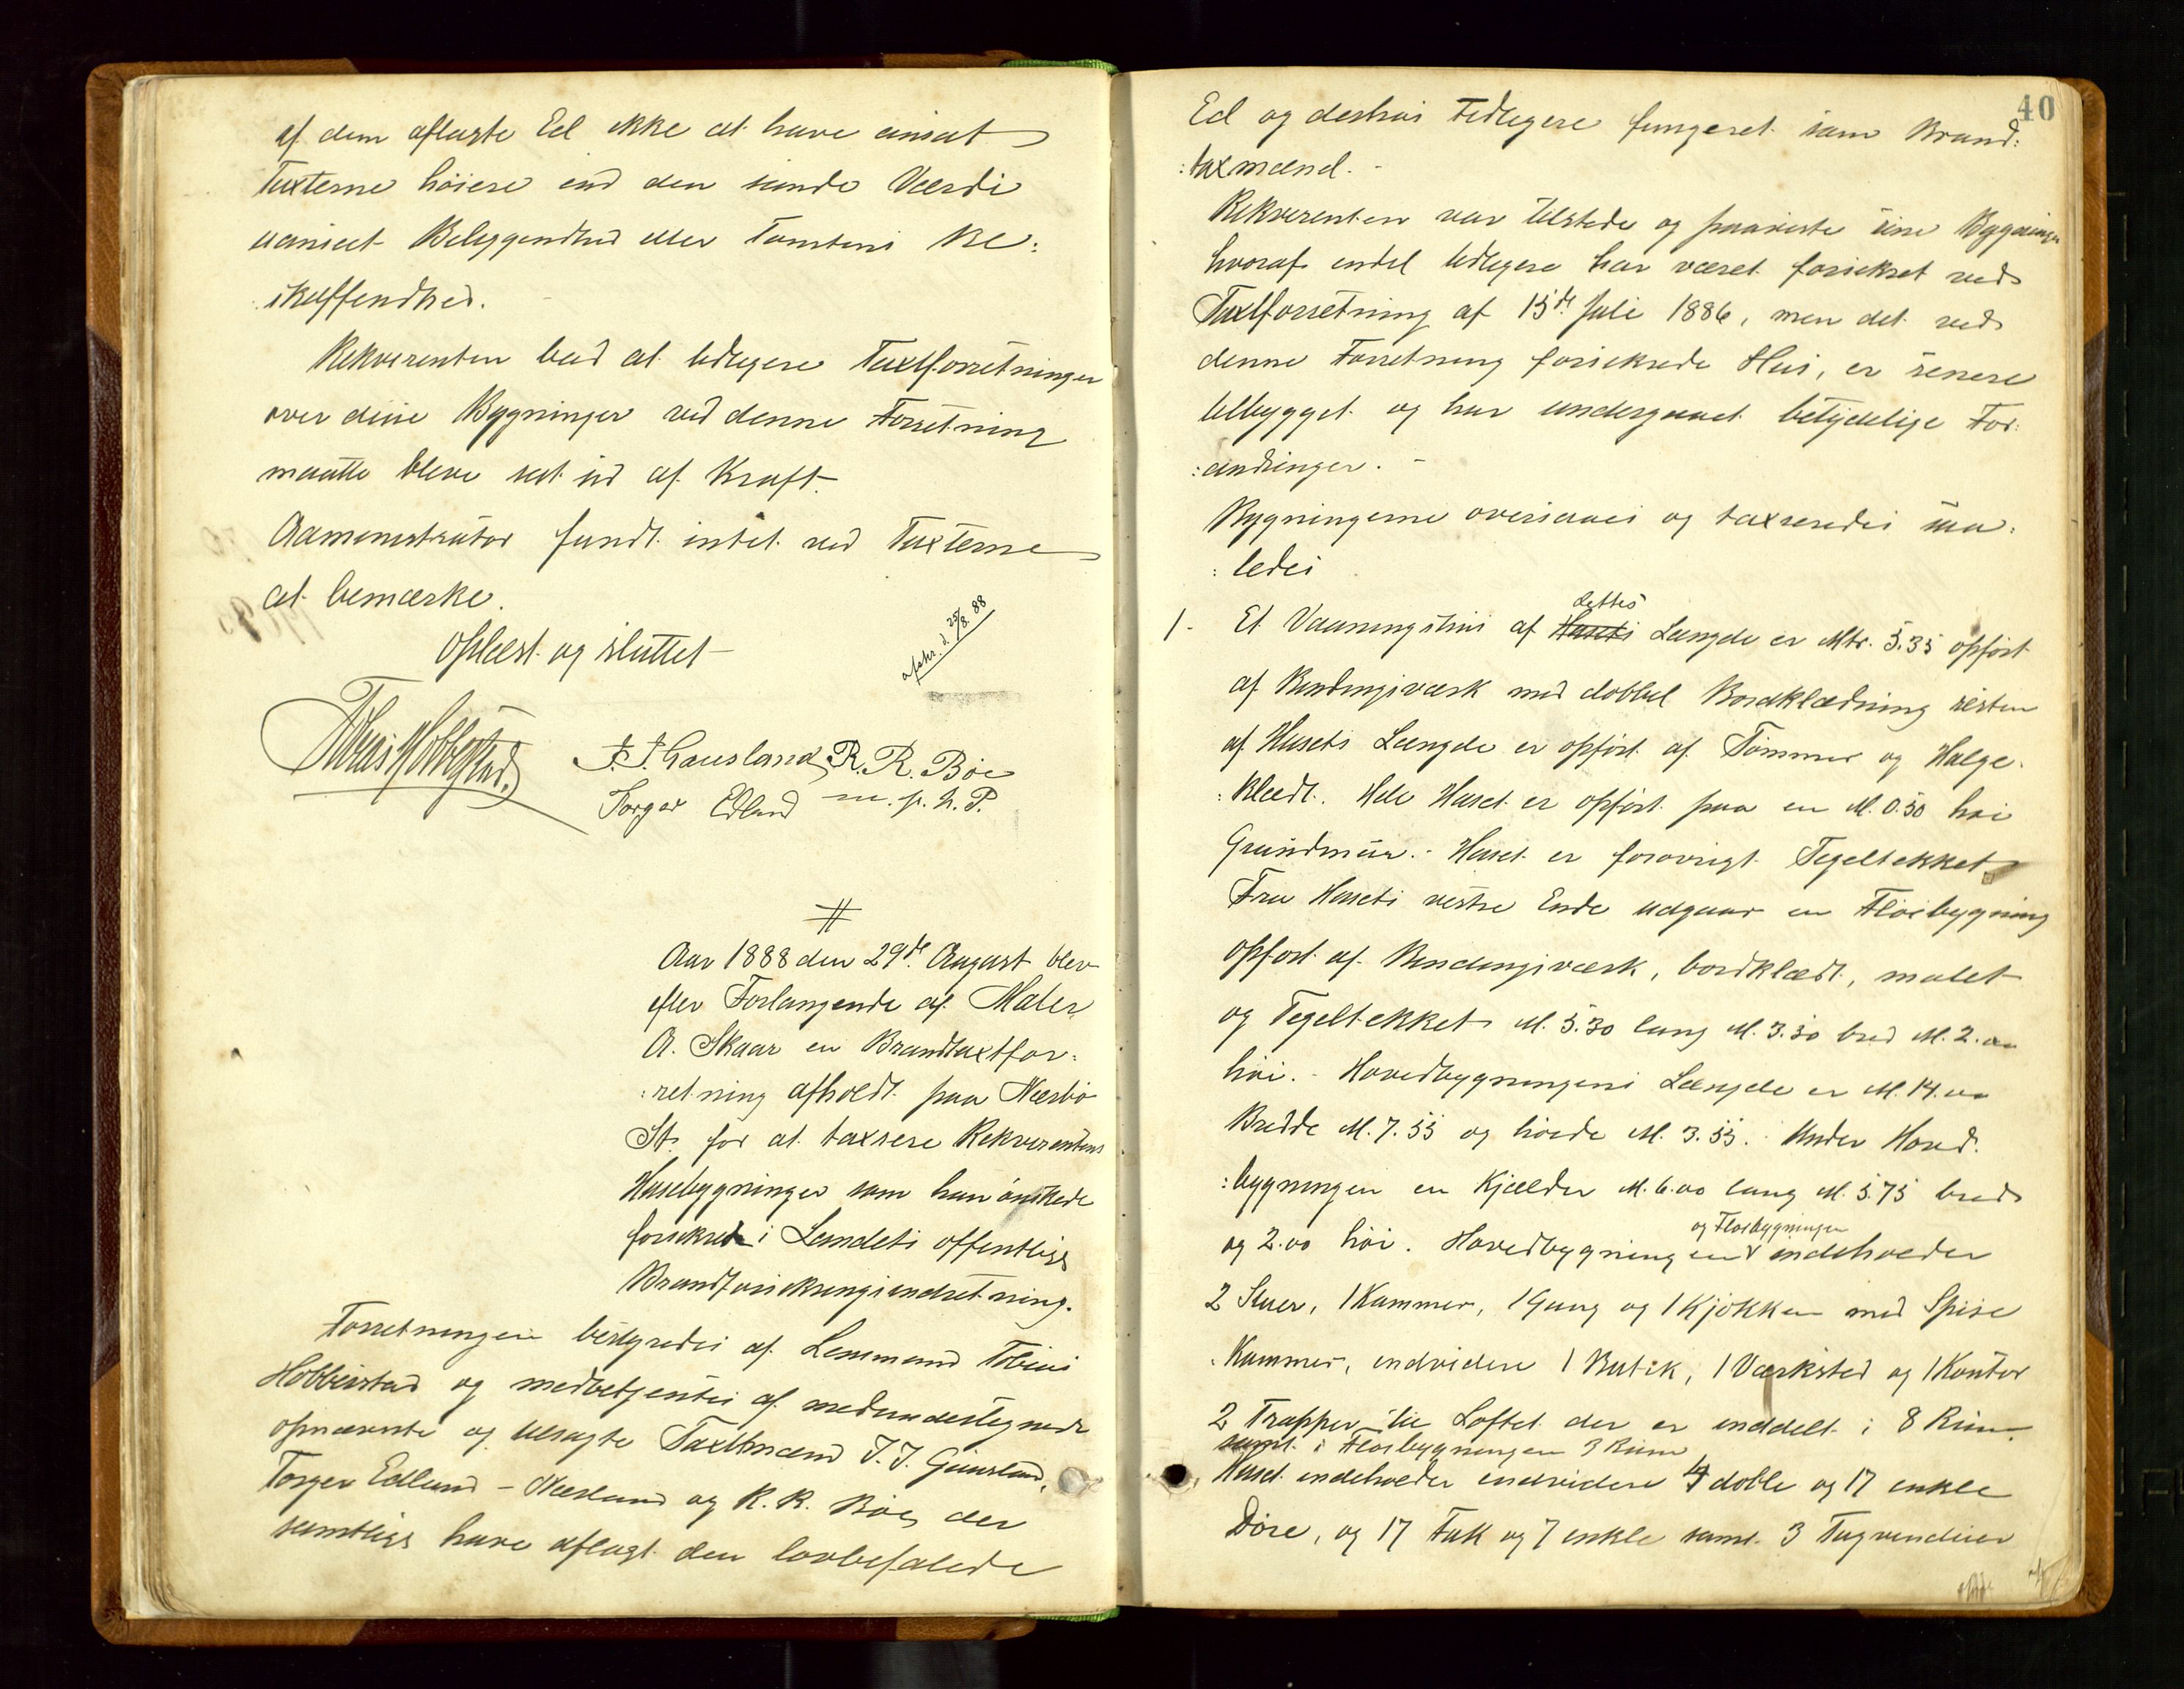 af dem aflagte Ed ikke at have ansat
Taxterne høiere end den sande Værdi
uanseet Beliggenhed eller Tomtens Be:
:skaffenhed.
Rekvirenten bad at tidligere Taxtforretninger
over disse Bygninger ved denne Forretning
maatte blive sat ud af Kraft.
Administrator fandt intet ved Taxterne
at bemærke.
Oplæst og sluttet
afskr. d. 25/8 88
Tobias Hobberstad.
J. J. Gausland R. R. Bøe
Torger Edland m. p. h. P.
#
Aar 1888 den 29de August blev
efter Forlangende af Maler
A. Skaar en Brandtaxtfor:
:retning afholdt paa Nærbø
St. for at taxsere Rekvirentens
Husebygninger som han ønskede
forsikrede i Landets offentlige
Brandforsikringsindretning.
Forretningen bestyredes af Lensmand Tobias
Hobberstad og medbetjentes af medundertegnede
opnævnte og tilsagte Taxtmænd J. J. Gausland,
Torger Edland - Næsland og R. R. Bøe, der
samtlige have aflagt den lovbefalede
40
Ed og deshos tidligere fungeret som Brand:
:taxmænd. -
Rekvirenten var tilstede og paaviste sine Bygninger
hvoraf endel tidligere har været forsikret ved
Taxtforretning af 15de Juli 1886, men det ved
denne Forretning forsikrede Hus, er senere
tilbygget og har undergaaet betydelige For:
:andringer. -
Bygningerne oversaaes og taxseredes saa:
:ledes
1. Et Vaaningshus af Husets Længde er Mtr. 5.35 opført
dettes
af Bindingsværk med dobbel Bordklædning resten
af Husets Længde er opført af Tømmer og Halge.
:klædt. Hele Huset er opført paa en M. 0.50 høi
Grundmur. - Huset er forøvrigt Tegeltekket.
Fra Husets vestre Ende udgaar en Fløibygning
opført af Bindingsværk, bordklædt, malet
og Tegeltekket M. 5.30 lang M. 3.30 bred M. 2.00
høi. - Hovedbygningens Længde er M. 14.00
Bredde M. 7.55 og høide M. 3.55. Under Hoved.
:bygningen en Kjælder M. 6.00 lang M. 5.75 bred
og Fløibygningen
og 2.00 høi. Hovedbygningen indeholder
2 Stuer, 1 Kammer, 1 Gang og 1 Kjøkken med Spise
:Kammer, endvidere 1 Butik, 1 Værksted og 1 Kontor
2 Trapper til Loftet der er inddelt i 8 Rum.
samt i Fløibygningen 3 Rum
Huset indeholder endvidere 4 doble og 17 enkle
Døre, og 17 Fak og 7 enkle samt 3 Tagvinduer